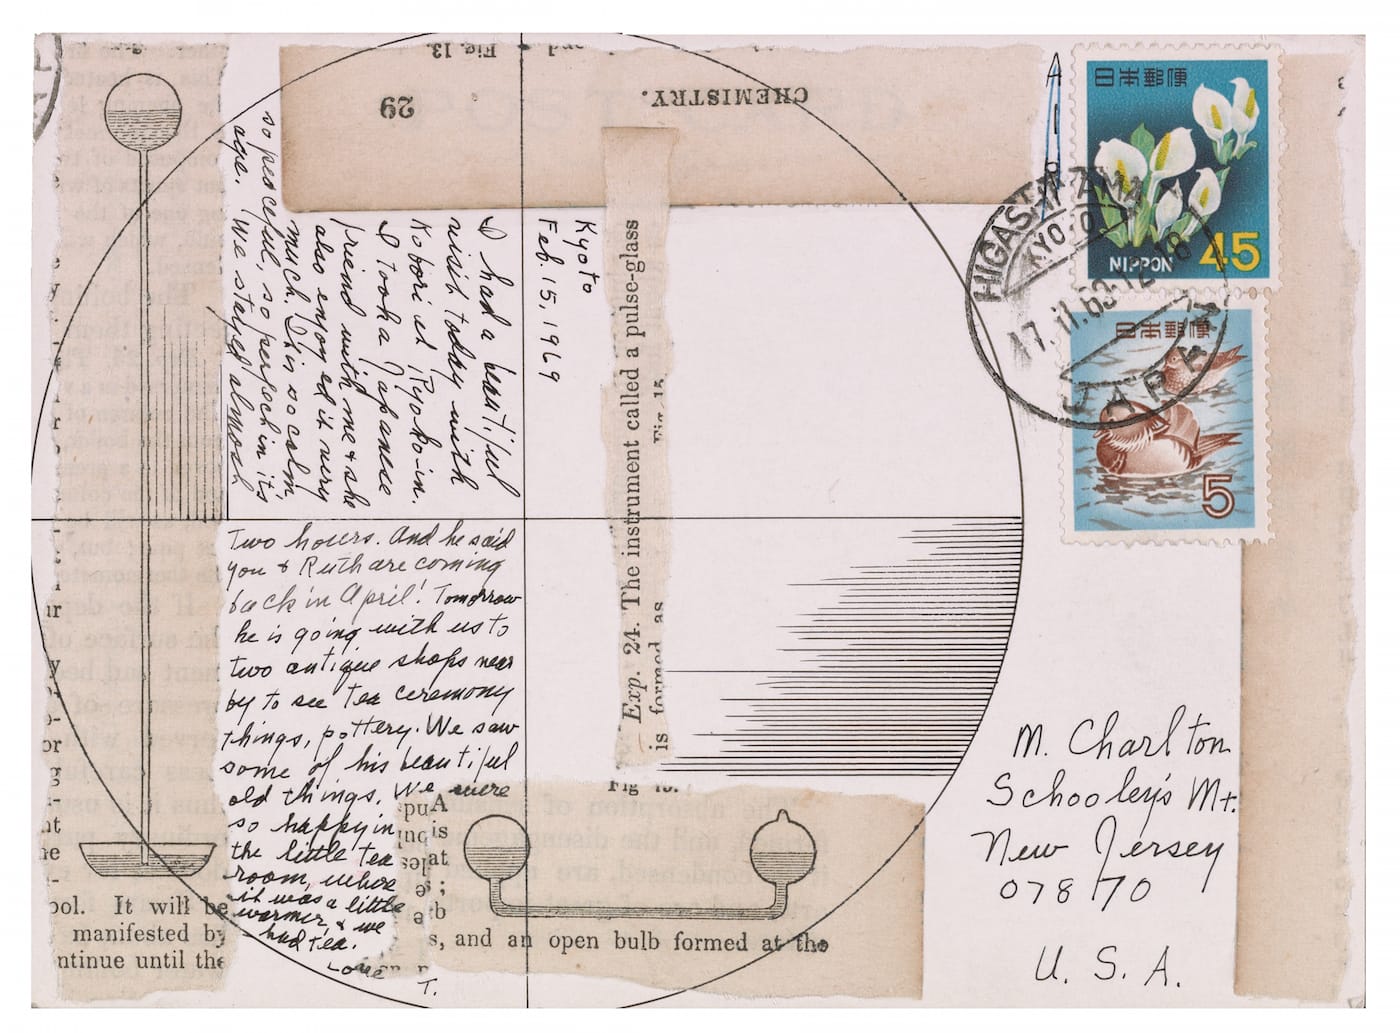 Fig. 13.
and
29
CHEMISTRY.
AIR
日本郵便
NIPPON 45
日本郵便
5
HIGASHIYAMA
KYOTO
17.II.69.12-18
JAPAN
Kyoto
Feb. 15, 1969
I had a beautiful
visit today with
Kobori at Ryoko-in.
I took a Japanese
friend with me & she
also enjoyed it very
much. It is so calm,
so peaceful, so perfect in its
age. We stayed almost
Two hours. And he said
you & Ruth are coming
back in April! Tomorrow
he is going with us to
two antique shops near
by to see Tea ceremony
things, pottery. We saw
some of his beautiful
old things. We were
so happy in
the little tea
room, where
it was a little
warmer, & we
had tea.
Love
T.
Exp. 24. The instrument called a pulse-glass
is formed as
Fig. 15.
M. Charlton
Schooley's Mt.
New Jersey
07870
U. S. A.
ool. It will be
manifested by
ntinue until the
s, and an open bulb formed at the